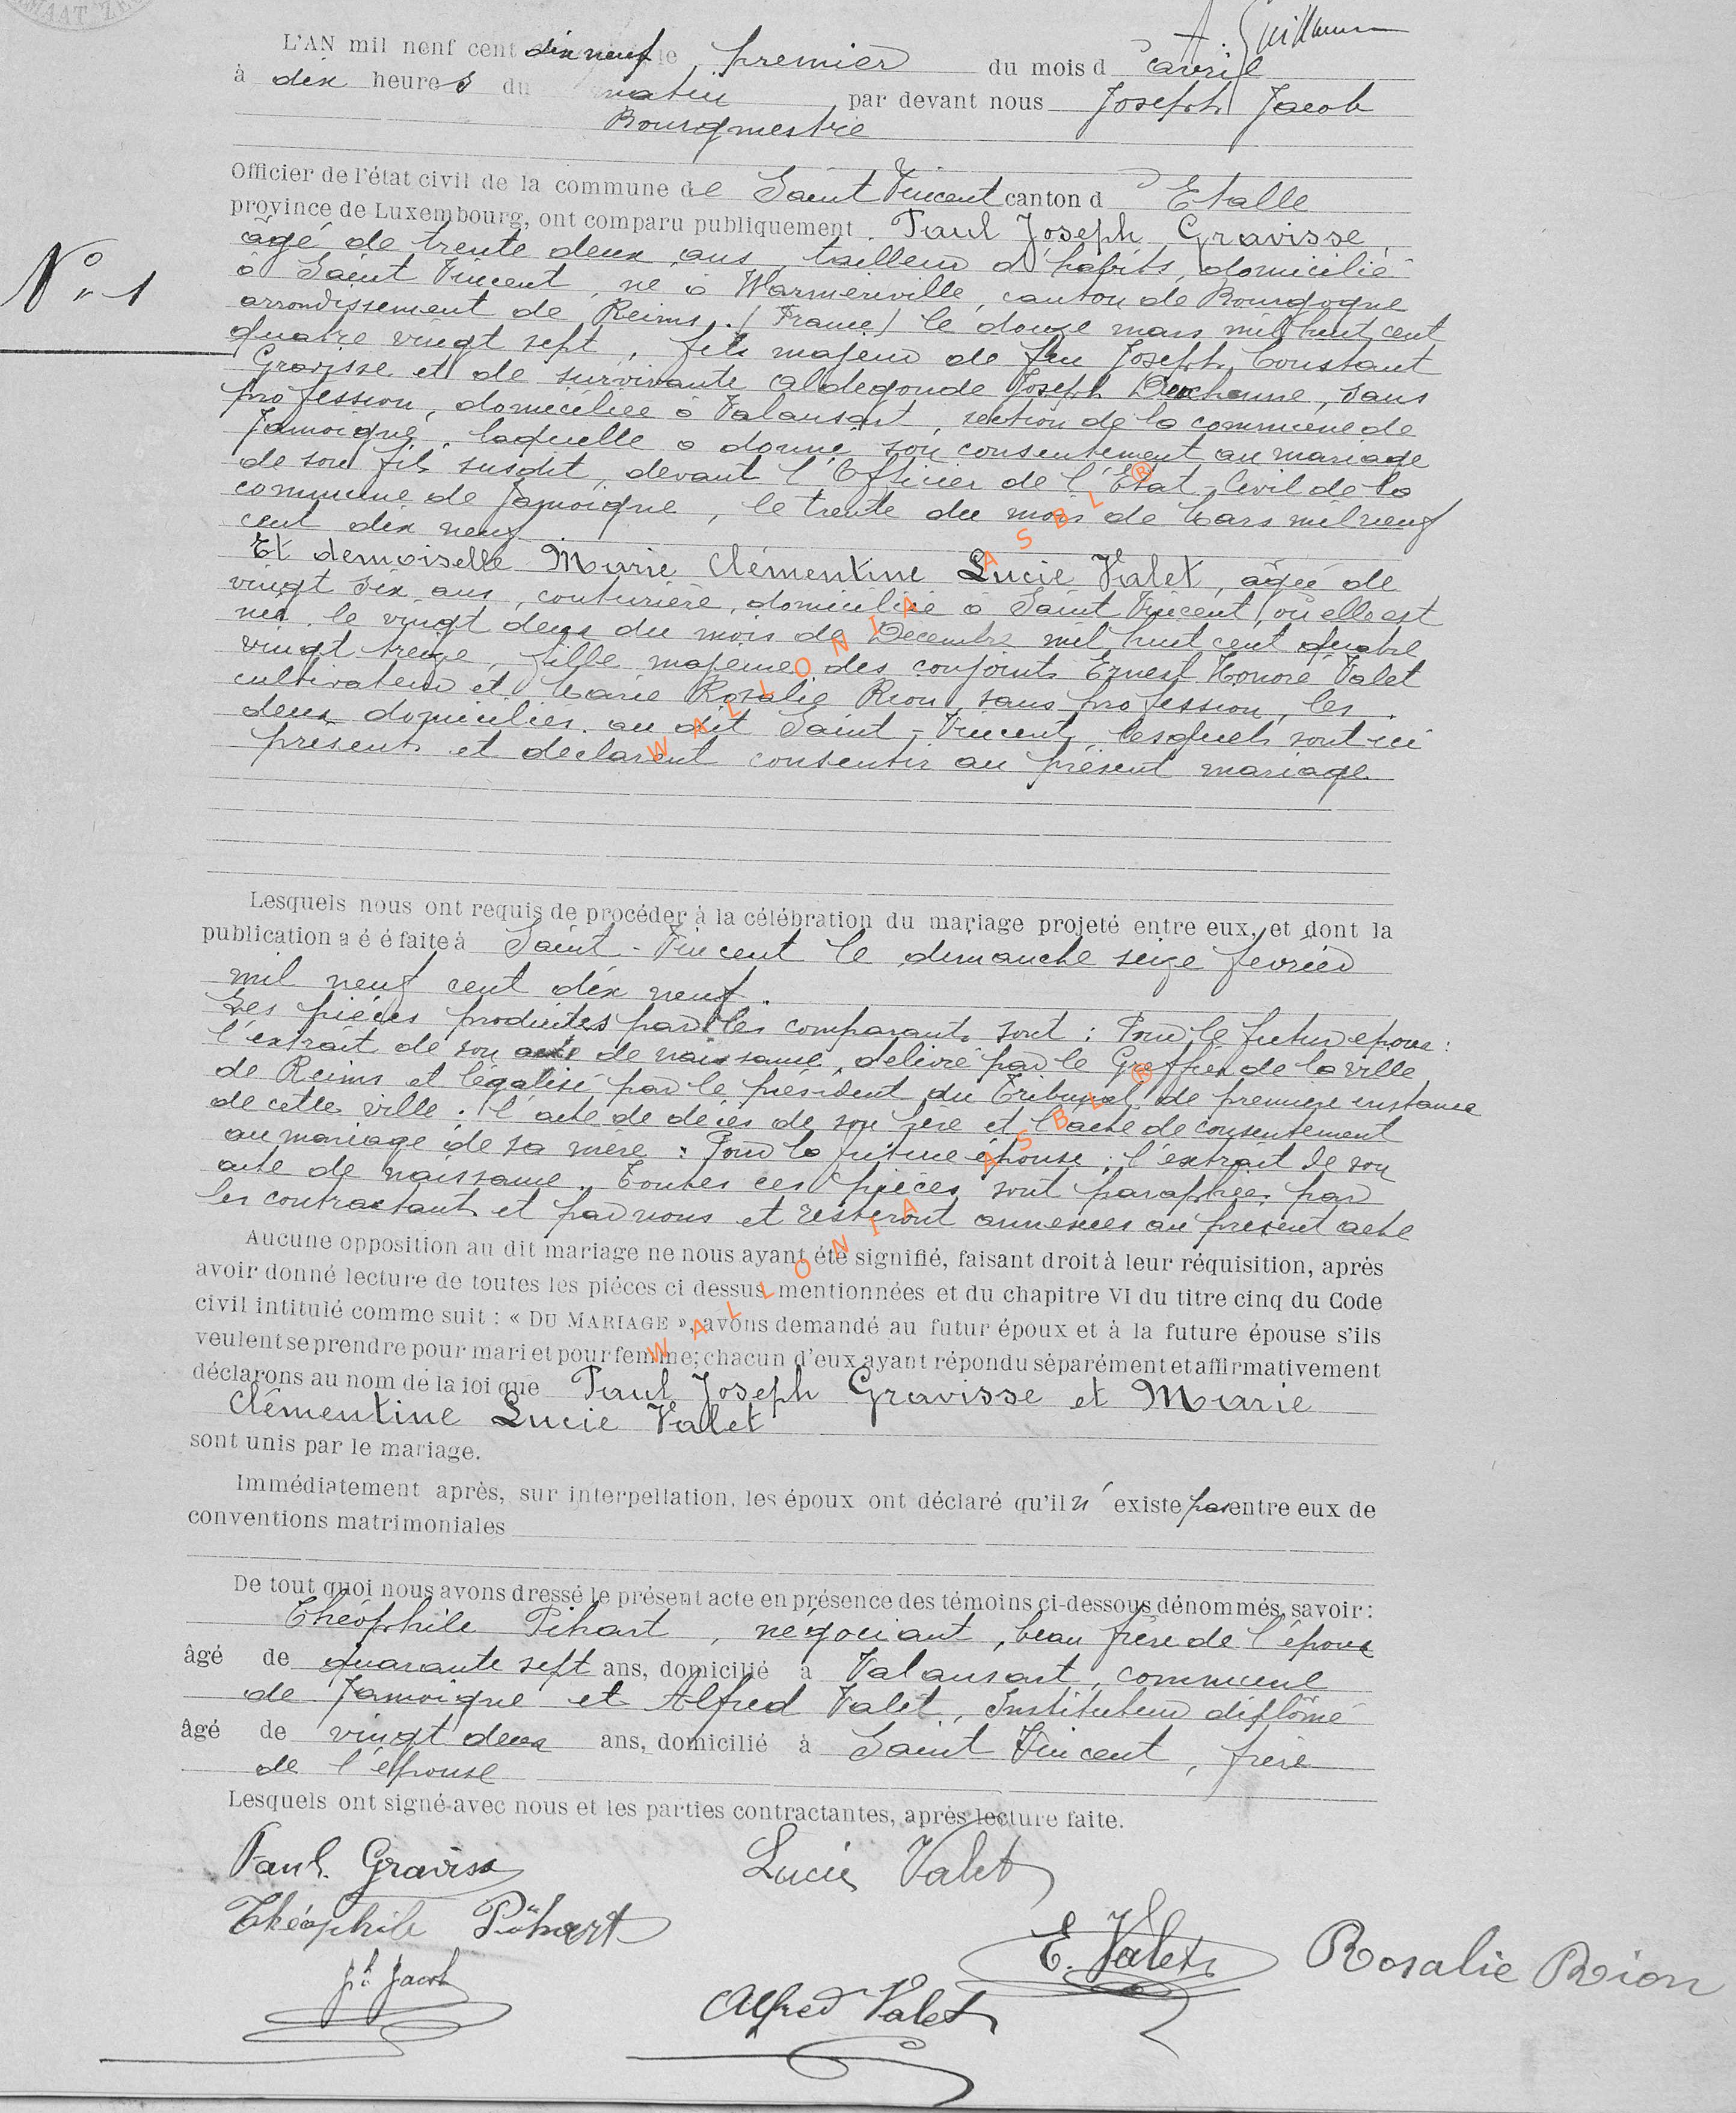 A. Guillaume
L'AN mil neuf cent dix neuf le premier du mois d'avril
à dix heures du matin par devant nous Joseph Jacob
Bourgmestre
Officier de l'état civil de la commune de Saint Vincent canton d'Etalle
province de Luxembourg, ont comparu publiquement Paul Joseph Gravisse,
N° 1
âgé de trente deux ans, tailleur d'habits, domicilié
à Saint Vincent, né à Warmeriville, canton de Bourgogne
arrondissement de Reims. (France) le douze mars mil huit cent
quatre vingt sept, fils majeur de feu Joseph Constant
Gravisse et de survivante Aldegonde Joseph Duchenne, sans
profession, domiciliée à Valansart, section de la commune de
Jamoigne, laquelle a donné son consentement au mariage
de son fils susdit, devant l'Officier de l'Etat-Civil de la
commune de Jamoigne, le trente du mois de Mars mil neuf
cent dix neuf
Et demoiselle Marie Clémentine Lucie Valet, âgée de
vingt six ans, couturière, domiciliée à Saint Vincent, où elle est
née le vingt deux du mois de Décembre mil huit cent quatre
vingt treize, fille majeure des conjoints Ernest Honoré Valet
cultivateur et Marie Rosalie Rion, sans profession, les
deux domiciliés au dit Saint-Vincent, lesquels sont ici
présents et déclarent consentir au présent mariage
Lesquels nous ont requis de procéder à la célébration du mariage projeté entre eux, et dont la
publication a é é faite à Saint-Vincent le dimanche seize février
mil neuf cent dix neuf.
Les pièces produites par les comparants sont : Pour le futur époux :
l'extrait de son acte de naissance, délivré par le Greffier de la ville
de Reims et légalisé par le président du Tribunal de première instance
de cette ville. l'acte de décès de son père et l'acte de consentement
au mariage de sa mère : Pour la future épouse : l'extrait de son
acte de naissance. Toutes ces pièces sont paraphées par
les contractants et par nous et resteront annexées au présent acte
Aucune opposition au dit mariage ne nous ayant été signifié, faisant droit à leur réquisition, après
avoir donné lecture de toutes les pièces ci dessus mentionnées et du chapitre VI du titre cinq du Code
civil intitulé comme suit : « DU MARIAGE », avons demandé au futur époux et à la future épouse s'ils
veulent se prendre pour mari et pour femme; chacun d'eux ayant répondu séparément et affirmativement
déclarons au nom de la loi que Paul Joseph Gravisse et Marie
Clémentine Lucie Valet
sont unis par le mariage.
Immédiatement après, sur interpellation, les époux ont déclaré qu'il n'existe pas entre eux de
conventions matrimoniales
De tout quoi nous avons dressé le présent acte en présence des témoins ci-dessous dénommés, savoir :
Théophile Pihart, négociant, beau frère de l'époux
âgé de quarante sept ans, domicilié à Valansart, commune
de Jamoigne et Alfred Valet, Instituteur diplômé
âgé de vingt deux ans, domicilié à Saint Vincent, frère
de l'épouse
Lesquels ont signé avec nous et les parties contractantes, après lecture faite.
Paul Gravisse Lucie Valet
Théophile Pihart
E. Valet Rosalie Rion
Jh Jacob
Alfred Valet
WALLONIA ASBL ®
WALLONIA ASBL ®